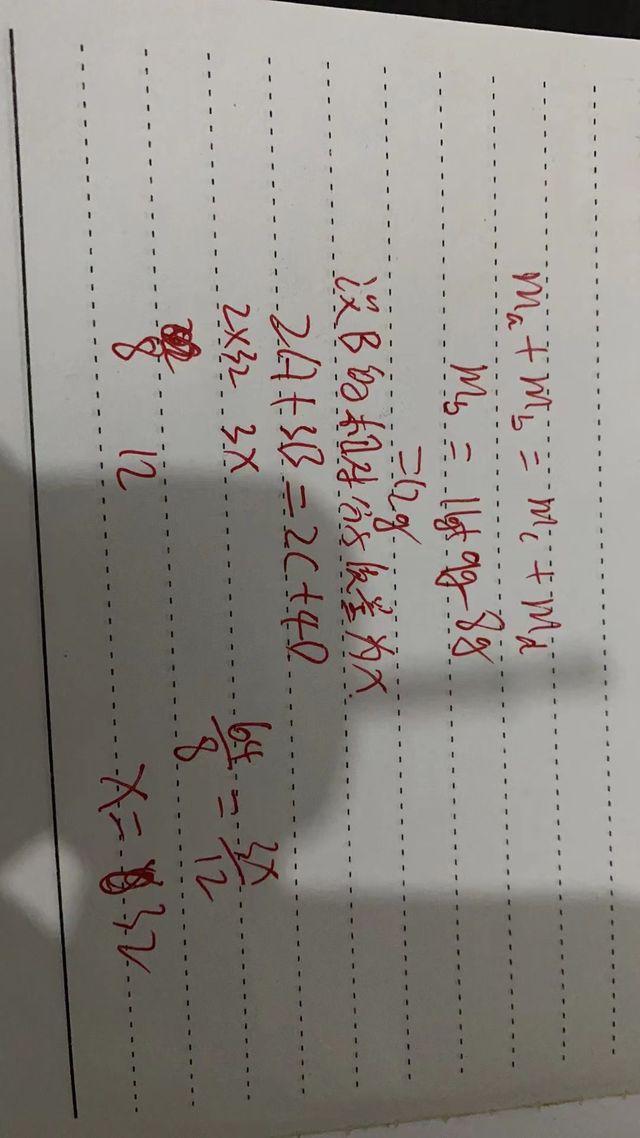 ma + mb = mc + md
mb = 11g + 9g - 8g
= 12g
设B的相对分子质量为x
2A + 3B = 2C + 4D
2×32 3x
8 12
64/8 = 3x/12
x = 32